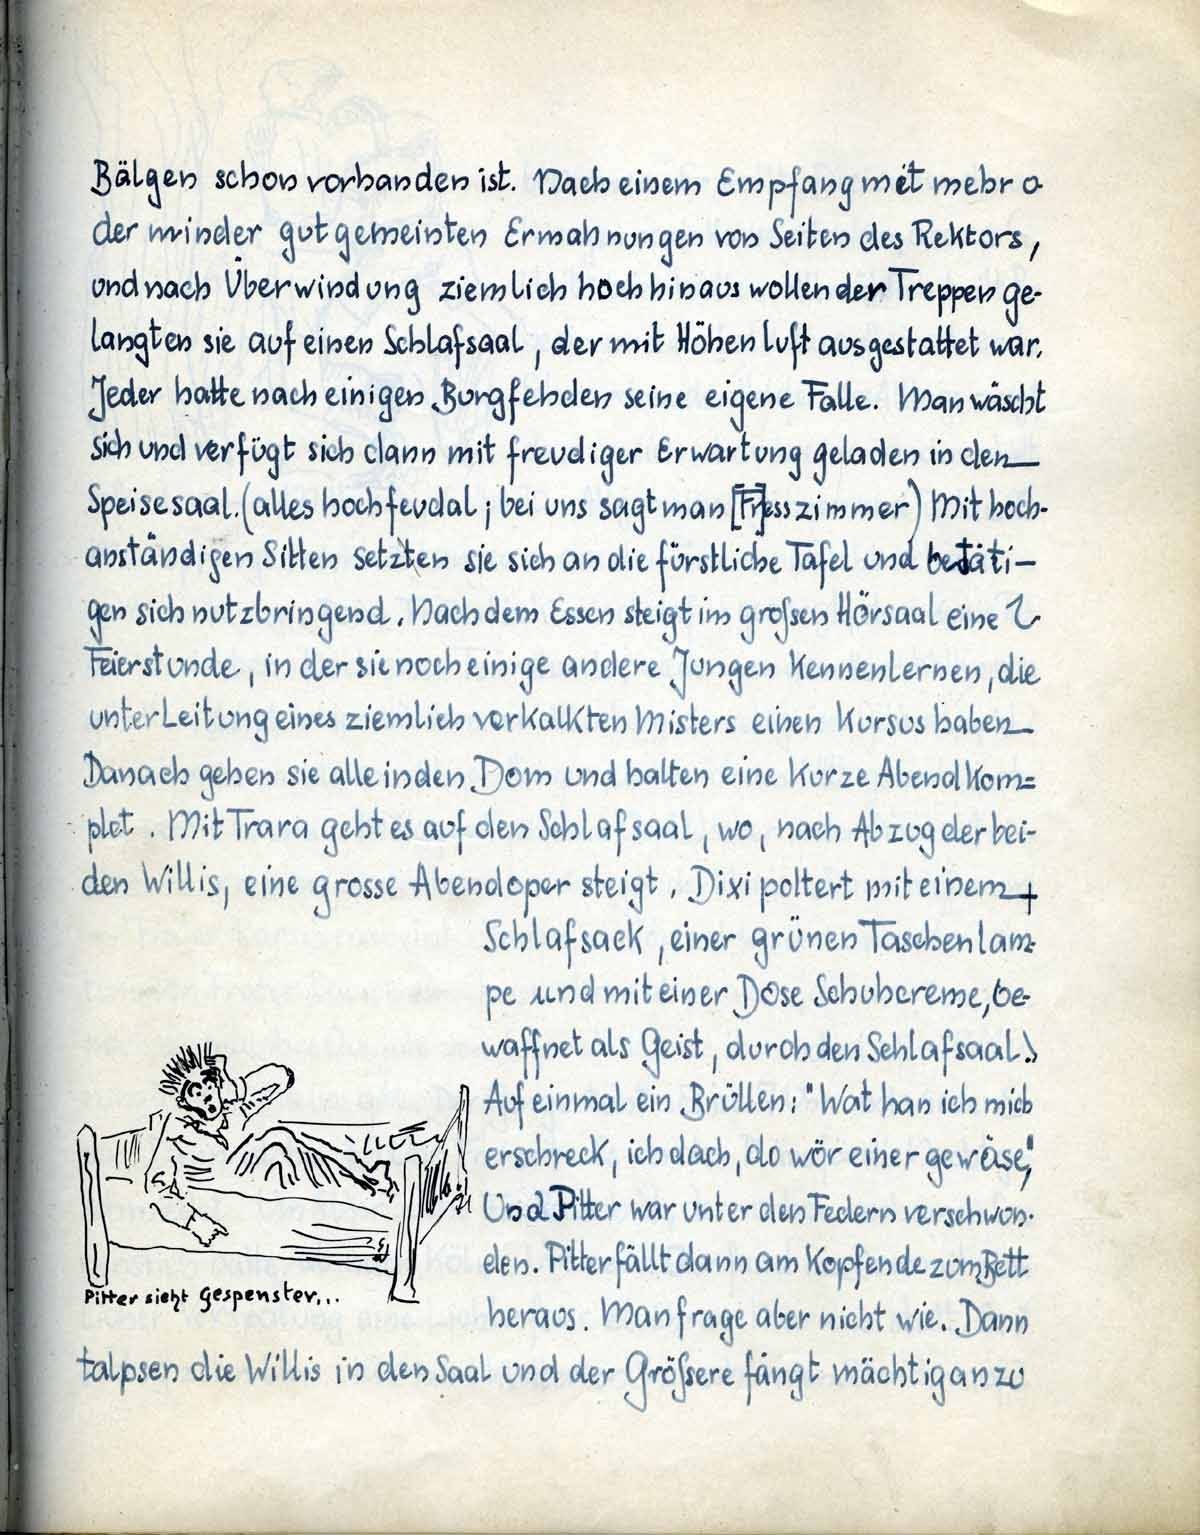 Bälgen schon vorhanden ist. Nach einem Empfang mit mehr o-
der minder gut gemeinten Ermahnungen von Seiten des Rektors,
und nach Überwindung ziemlich hoch hinaus wollender Treppen ge-
langten sie auf einen Schlafsaal, der mit Höhenluft ausgestattet war.
Jeder hatte nach einigen Burgfehden seine eigene Falle. Man wäscht
sich und verfügt sich dann mit freudiger Erwartung geladen in den
Speisesaal. (alles hochfeudal; bei uns sagt man [Fr]esszimmer) Mit hoch-
anständigen Sitten setzten sie sich an die fürstliche Tafel und betäti-
gen sich nutzbringend. Nach dem Essen steigt im großen Hörsaal eine
Feierstunde, in der sie noch einige andere Jungen kennenlernen, die
unter Leitung eines ziemlich verkalkten Misters einen Kursus haben
Danach gehen sie alle in den Dom und halten eine kurze Abendkom=
plet. Mit Trara geht es auf den Schlafsaal, wo, nach Abzug der bei-
den Willis, eine grosse Abendoper steigt. Dixi poltert mit einem
Schlafsack, einer grünen Taschenlam=
pe und mit einer Dose Schuhcreme, be-
waffnet als Geist, durch den Schlafsaal.
Auf einmal ein Brüllen: "Wat han ich mich
erschreck, ich dach, do wör einer gewäse,"
Und Pitter war unter den Federn verschwun-
den. Pitter fällt dann am Kopfende zum Bett
heraus. Man frage aber nicht wie. Dann
talpsen die Willis in den Saal und der Größere fängt mächtig an zu
Pitter sieht Gespenster...